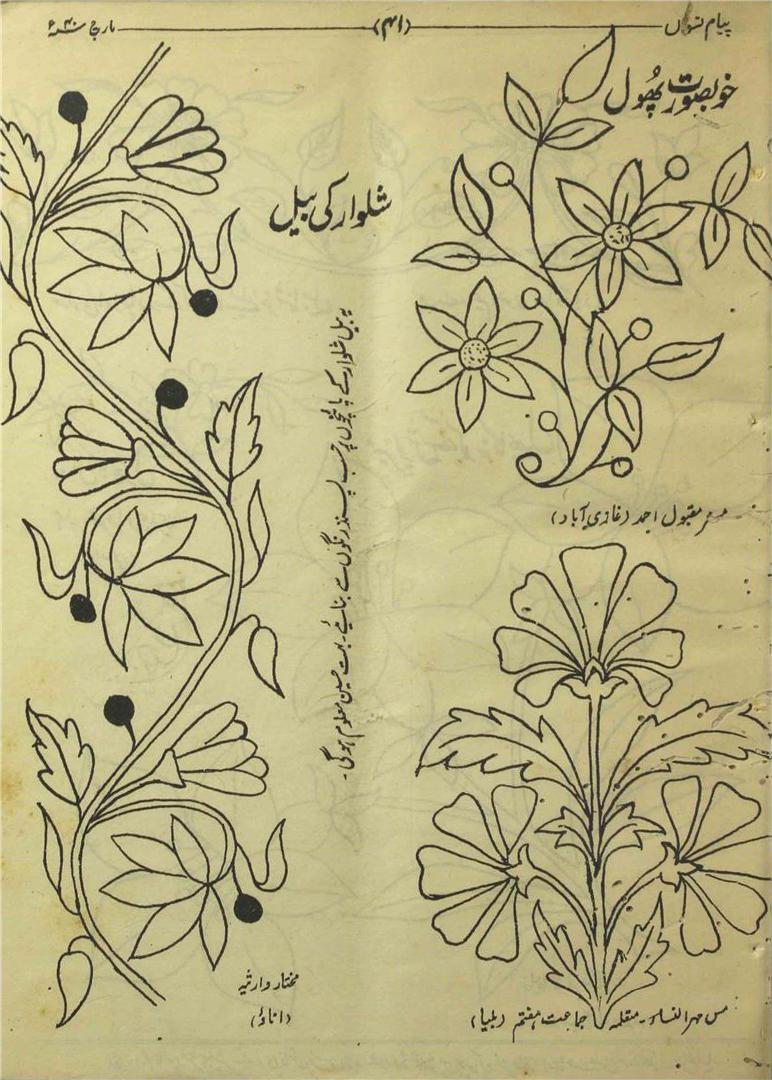 پیام نسواں
(۴۱)
مارچ سنہ ۴۰ء
خوبصورت پھول
مسز مقبول احمد (غازی آباد)
مس مہرالنساء۔ متعلمہ جماعت ہفتم (بلیا)
شلوار کی بیل
یہ بیل شلوار کے پائنچوں پر حسب پسند رنگوں سے بنائیے۔ بہت حسین معلوم ہوگی۔
مختار وارثیہ
(اناؤ)